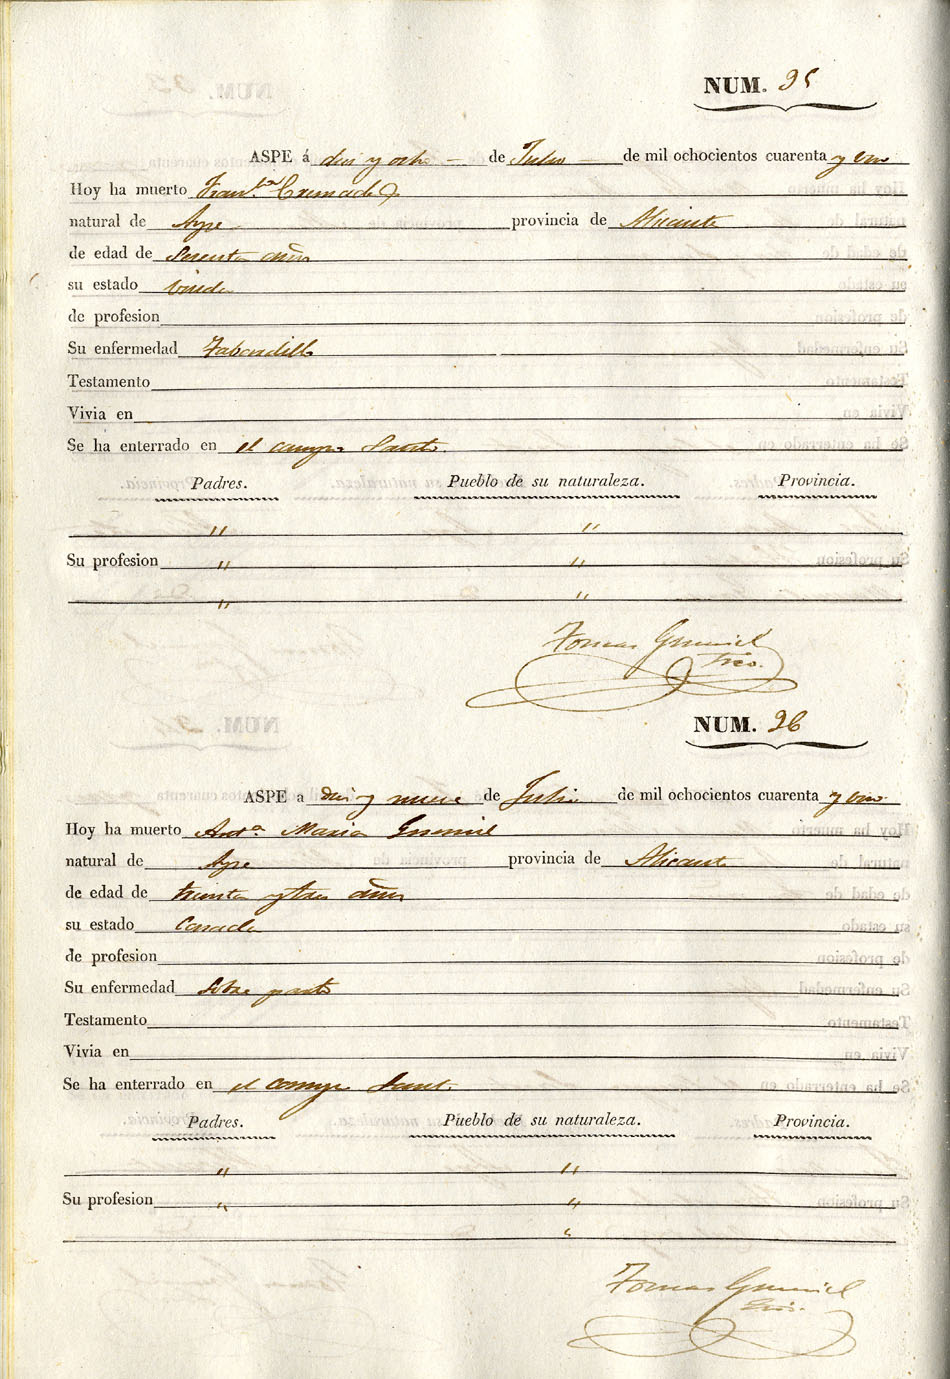 NUM. 95
ASPE á diez y ocho de Julio de mil ochocientos cuarenta y uno
Hoy ha muerto Fran.ca Cremades
natural de Aspe provincia de Alicante
de edad de Sesenta años
su estado viuda
de profesion
Su enfermedad Tabardillo
Testamento
Vivia en
Se ha enterrado en el campo Santo.
Padres. Pueblo de su naturaleza. Provincia.
" "
Su profesion " "
" "
Tomas
NUM. 96
ASPE a diez y nueve de Julio de mil ochocientos cuarenta y uno
Hoy ha muerto Ant.a Maria
natural de Aspe provincia de Alicante
de edad de treinta y tres años
su estado Casada
de profesion
Su enfermedad Sobre parto
Testamento
Vivia en
Se ha enterrado en el campo Santo.
Padres. Pueblo de su naturaleza. Provincia.
" "
Su profesion " "
"
Tomas